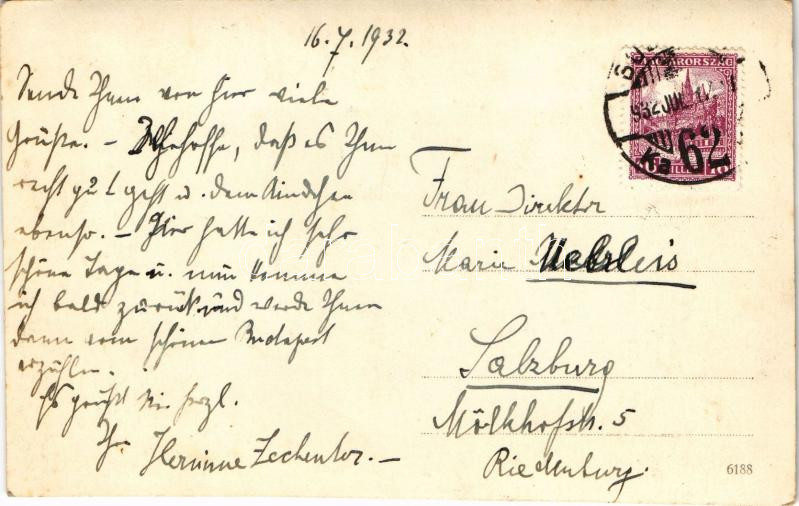 16.7.1932.
Sende Ihnen von hier viele
Grüße. – Ich hoffe, daß es Ihnen
recht gut geht u. dem Kindchen
ebenso. – Hier hatte ich sehr
schöne Tage u. nun komme
ich bald zurück und werde Ihnen
dann vom schönen Budapest
erzählen.
Es grüßt Sie herzl.
Ihre
Hermine Zechenter. –
MAGYARORSZÁG
932 JUL
62
Frau Direktor
Marie
Salzburg
Mölkhofstr. 5
Riedenburg.
6188